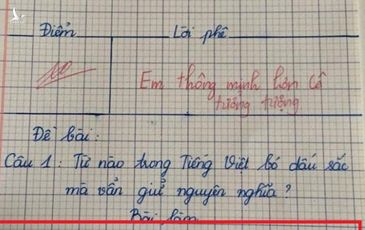 Điểm Lời phê
10
Em thông minh hơn cô
tưởng tượng
Đề bài :
Câu 1 : Từ nào trong Tiếng Việt bỏ dấu sắc
mà vẫn giữ nguyên nghĩa ?
Bài làm